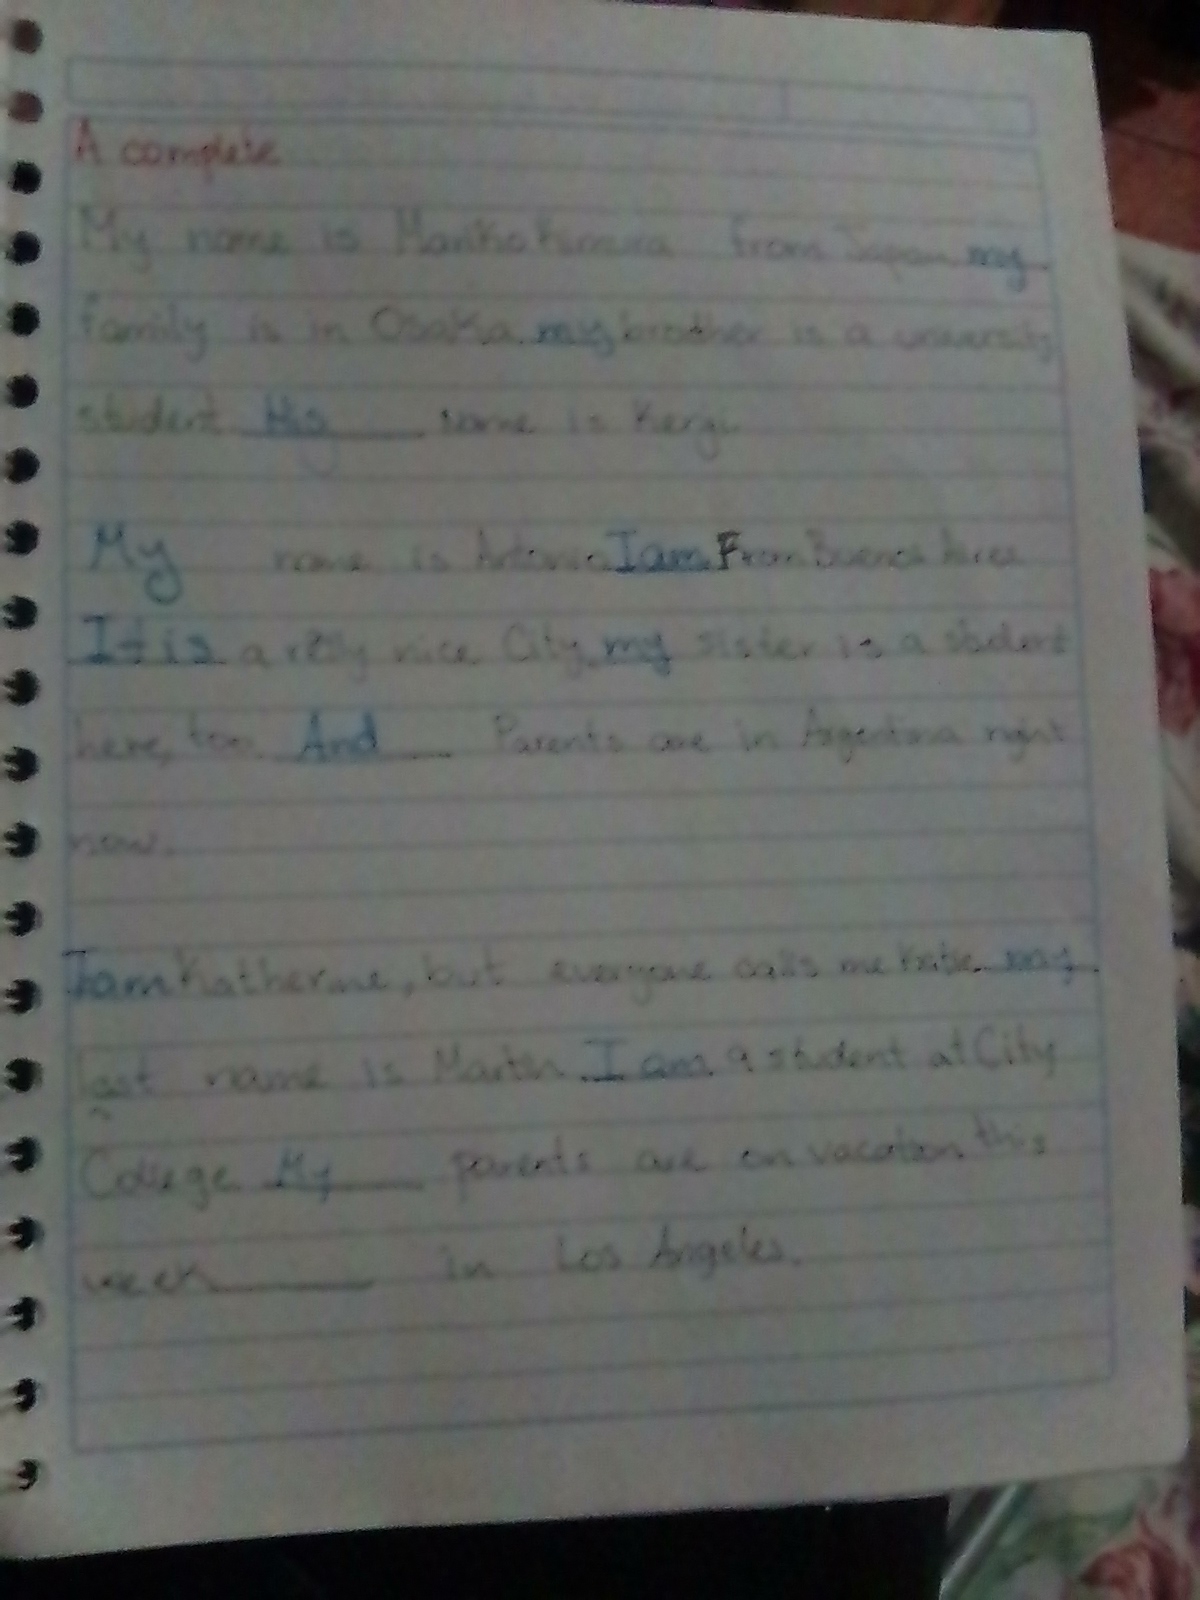 A complete
My name is Mariko Kimura from Japan my
family is in Osaka my brother is a university
student His name is Kergi
My name is Antonio I am From Buenos Aires
It is a really nice City, my sister is a student
here, too And Parents are in Argentina right
now.
I am Katherine, but everyone calls me Katie my
last name is Martin I am a student at City
College My parents are on vacation this
week in Los Angeles.